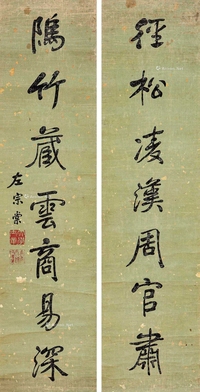 径松凌漢周官肅
隝竹蔵雲商易深
左宗棠